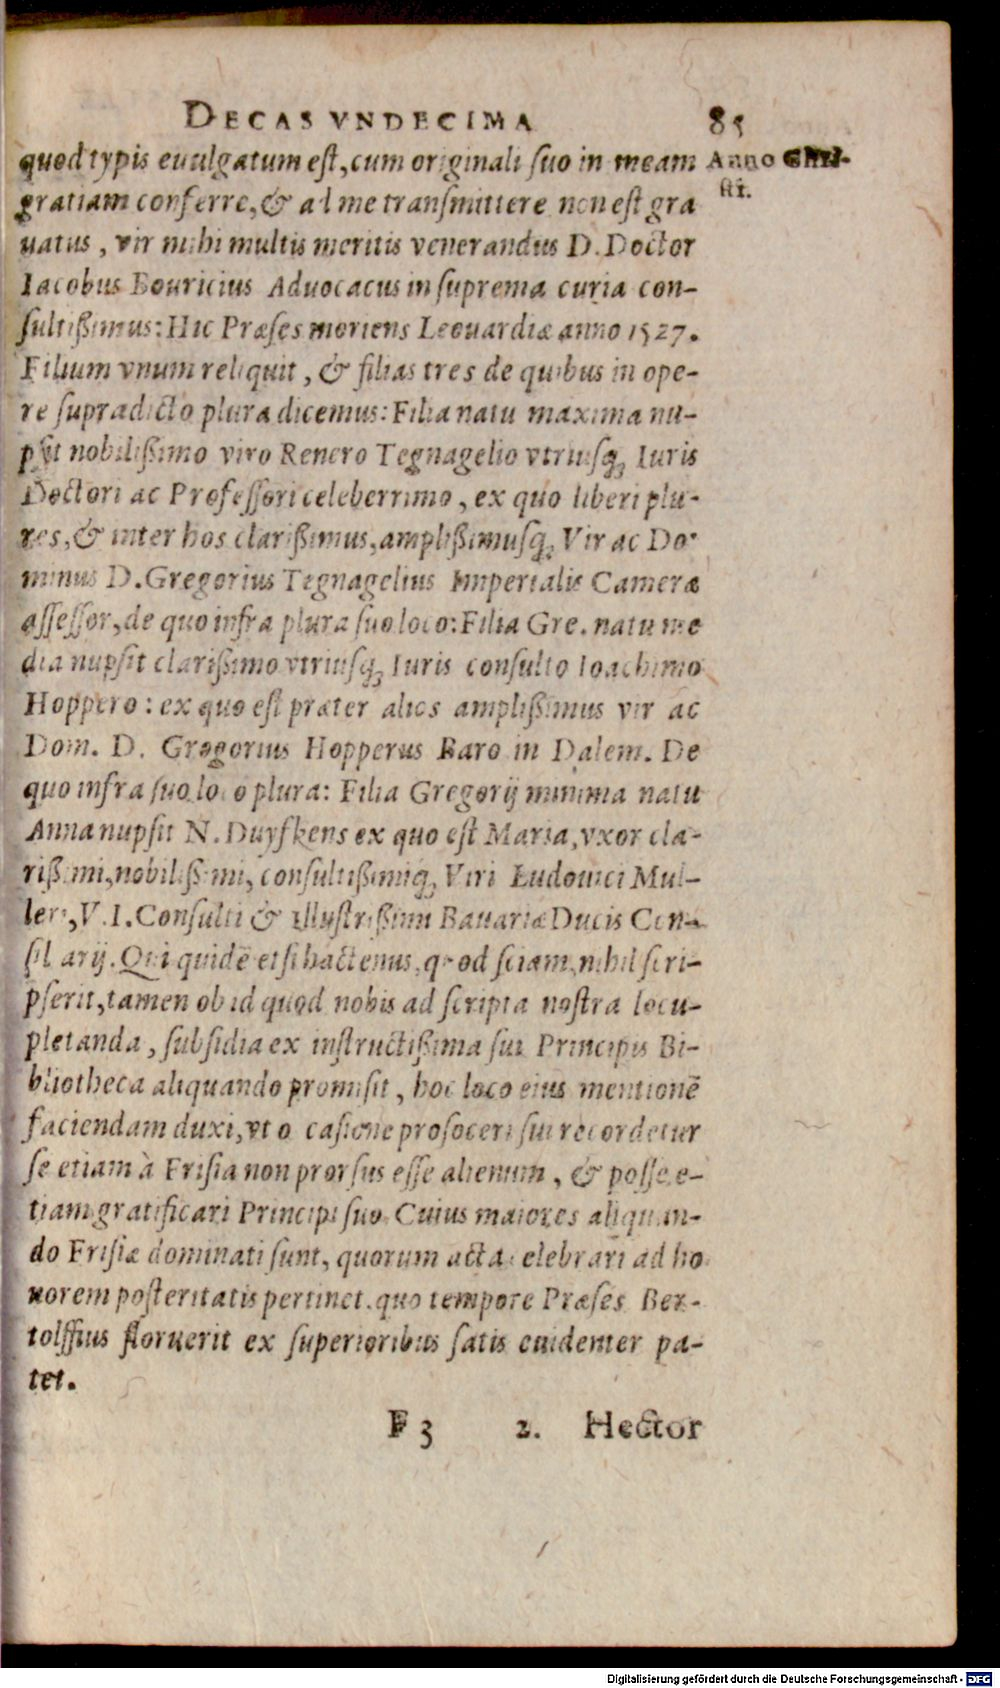 DECAS VNDECIMA 85
quod typis euulgatum eſt, cum originali ſuo in meam
Anno Chri-
ſti.
gratiam conferre, & ad me tranſmittere non eſt gra
uatus, vir mihi multis meritis venerandus D. Doctor
Iacobus Bouricius Aduocacus in ſuprema curia con-
ſultißimus: Hic Præſes moriens Leouardiæ anno 1527.
Filium vnum reliquit, & filias tres de quibus in ope-
re ſupradicto plura dicemus: Filia natu maxima nu-
pſit nobilißimo viro Renero Tegnagelio vtriuſq́; Iuris
Doctori ac Profeſſori celeberrimo, ex quo liberi plu-
res, & inter hos clarißimus, amplißimuſq́; Vir ac Do-
minus D. Gregorius Tegnagelius Imperialis Cameræ
aſſeſſor, de quo infra plura ſuo loco: Filia Gre. natu me
dia nupſit clarißimo vtriuſq́; Iuris conſulto Ioachimo
Hoppero: ex quo eſt præter alios amplißimus vir ac
Dom. D. Gregorius Hopperus Baro in Dalem. De
quo infra ſuo loco plura: Filia Gregorij minima natu
Anna nupſit N. Duyfkens ex quo eſt Maria, vxor cla-
rißimi, nobilißimi, conſultißimiq́; Viri Ludouici Mul-
leri, V. I. Conſulti & illuſtrißimi Bauariæ Ducis Con-
ſiliarij. Qui quidē etſi hactenus, quod ſciam, nihil ſcri-
pſerit, tamen ob id quod nobis ad ſcripta noſtra locu-
pletanda, ſubſidia ex inſtructißima ſui Principis Bi-
bliotheca aliquando promiſit, hoc loco eius mentionē
faciendam duxi, vt occaſione proſoceri ſui recordetur
ſe etiam à Friſia non prorſus eſſe alienum, & poſſe e-
tiam gratificari Principi ſuo. Cuius maiores aliquan-
do Friſiæ dominati ſunt, quorum acta celebrari ad ho
norem poſteritatis pertinet. quo tempore Præſes Ber-
tolffius floruerit ex ſuperioribus ſatis euidenter pa-
tet.
F 3 2. Hector
Digitalisierung gefördert durch die Deutsche Forschungsgemeinschaft - DFG